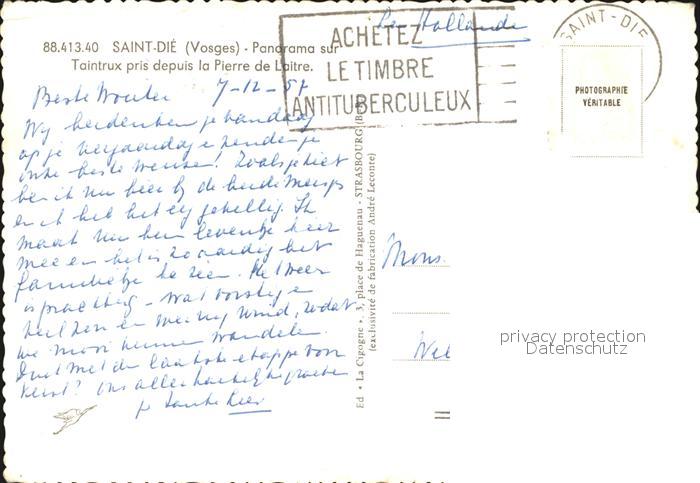 La Hollande
88.413.40 SAINT-DIÉ (Vosges) - Panorama sur
Taintrux pris depuis la Pierre de Laitre.
ACHETEZ
LE TIMBRE
ANTITUBERCULEUX
SAINT-DIE
PHOTOGRAPHIE
VÉRITABLE
Beste Wouter 7-12-57
Wij herdenken je vandaag
op je verjaardag en zenden je
onze beste wensen! Zoals je ziet
ben ik nu hier bij de
en ik heb het erg gezellig. Ik
maak nu hun leventje hier
mee en het is zo aardig het
familietje te zien. Het weer
is prachtig - wat vorstig en
weinig wind, zodat
we mooi kunnen wandelen.
met de laatste etappe voor
Kerst? Ons aller hartelijke groeten
je tante
Ed. "La Cigogne", 3, place de Haguenau - STRASBOURG
(exclusivité de fabrication André Leconte)
Mons.
privacy protection
Datenschutz